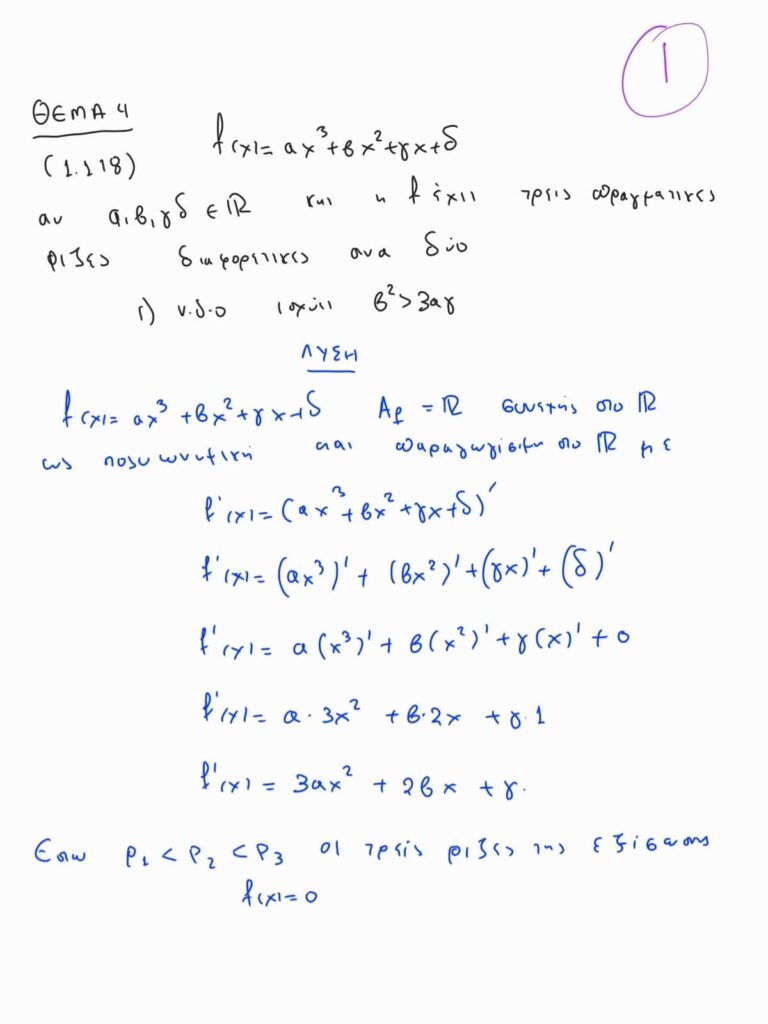 1
ΘΕΜΑ 4
f(x)= αx³+βx²+γx+δ
(1.118)
αν α,β,γ δ ∈ ℝ και η f έχει τρεις πραγματικες
ριζες διαφορετικες ανα δύο
i) ν.δ.ο ισχύει β²>3αγ
ΛΥΣΗ
f(x)= αx³ +βx²+γx+δ Af = ℝ συνεχής στο ℝ
ως πολυωνυμική και παραγωγίσιμη στο ℝ με
f'(x)= (αx³+βx²+γx+δ)'
f'(x)= (αx³)' + (βx²)'+(γx)'+(δ)'
f'(x)= α(x³)'+ β(x²)'+γ(x)'+0
f'(x)= α·3x² +β·2x +γ·1
f'(x)= 3αx² + 2βx +γ.
Εστω ρ1 < ρ2 < ρ3 οι τρείς ριζες της εξίσωσης
f(x)=0